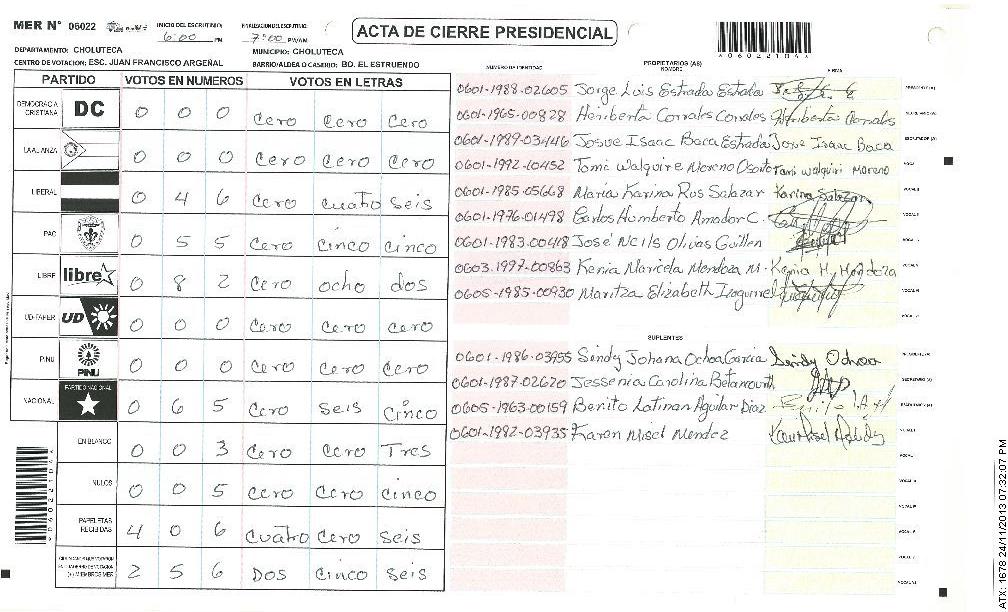 MER N° 06022 INICIO DEL ESCRUTINIO: 6:00 PM FINALIZACION DEL ESCRUTINIO: 7:00 PM/AM
ACTA DE CIERRE PRESIDENCIAL
*060221DA*
DEPARTAMENTO: CHOLUTECA MUNICIPIO: CHOLUTECA
CENTRO DE VOTACION: ESC. JUAN FRANCISCO ARGEÑAL BARRIO/ALDEA O CASERIO: BO. EL ESTRUENDO
PARTIDO VOTOS EN NUMEROS VOTOS EN LETRAS
DEMOCRACIA CRISTIANA DC 0 0 0 cero cero cero
LA ALIANZA 0 0 0 cero cero cero
LIBERAL 0 4 6 cero cuatro seis
PAC 0 5 5 cero cinco cinco
LIBRE libre 0 8 2 cero ocho dos
UD-FAPER UD 0 0 0 cero cero cero
PINU PINU 0 0 0 cero cero cero
NACIONAL PARTIDO NACIONAL 0 6 5 cero seis cinco
EN BLANCO 0 0 3 cero cero Tres
NULOS 0 0 5 cero cero cinco
PAPELETAS RECIBIDAS 4 0 6 cuatro cero seis
CIUDADANOS QUE VOTARON (+) MIEMBROS MER 2 5 6 Dos cinco seis
NUMERO DE IDENTIDAD PROPIETARIOS (AS) NOMBRE FIRMA
0601-1988-02605 Jorge Luis Estrada Estrada PRESIDENTE (A)
0601-1965-00828 Heriberta Corrales Corrales Heriberta Corrales SECRETARIO (A)
0601-1989-03446 Josue Isaac Baca Estrada Josue Isaac Baca ESCRUTADOR (A)
0601-1992-10452 Tomi Walquire Moreno Osorto Tomi Walquiri Moreno VOCAL I
0601-1985-05668 Maria Karina Ros Salazar Karina Salazar VOCAL II
0601-1976-01498 Carlos Humberto Amador C. VOCAL III
0601-1983-00418 José Neils Olivas Guillen
0603-1997-00863 Kenia Maricela Mendoza M. Kenia M, Mendoza
0605-1985-00930 Maritza Elizabeth
SUPLENTES
0601-1986-03955 Sindy Johana Ochoa Garcia Sindy Ochoa PRESIDENTE (A)
0601-1987-02620 Jessenia Carolina Betancourth SECRETARIO (A)
0605-1963-00159 Benito Latinan Aguilar Diaz ESCRUTADOR (A)
0601-1982-03935 Karen Misel Mendez
*060221DA*
ATX: 1678 24/11/2013 07:32:07 PM